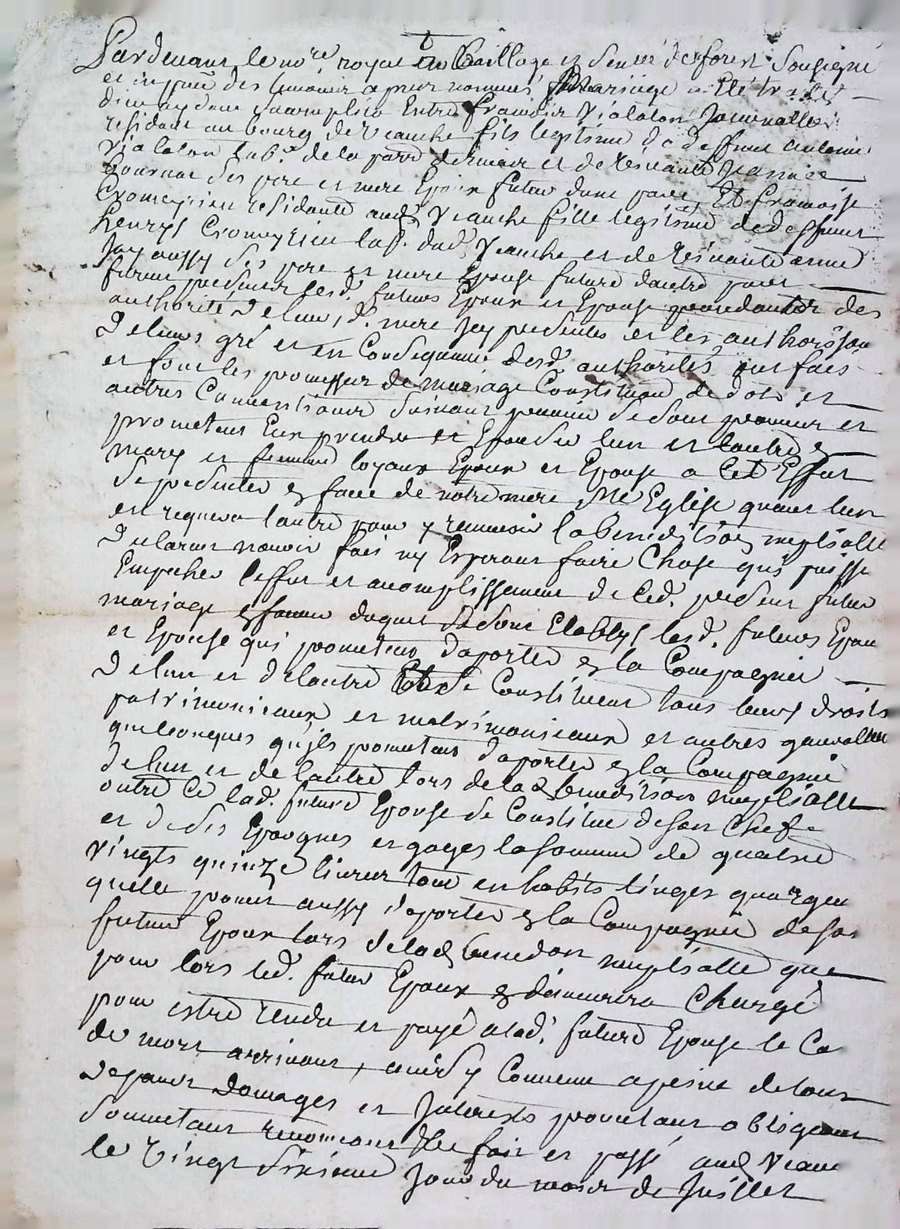 Pardevant le no.re royal au Bailliage et Seneé. de forest Soussigné
et en pnce des temoins apres nommés Mariage a Eté traité
Entre françois Vialaton Journallier
residant au bourg de Veauche fils legitime de deffunt antoine
Vialaton lab.r de la parr. de et de vivante
ses pere et mere Epoux futur dune part, Et françoise
residante aud. Veauche fille legitime de deffunt
henrys lab.r dud. Veauche et de vivante anne
Jay aussy ses pere et mere Epouse future dautre part
lesd. futurs Epoux et Epouse procedants des
authorités de leurs d. mere Icy presentes et les authorisant
de leurs gré et en Consequence desd. authorités ont fait
et font les promesses de mariage Constitution de dots et
autres Conventions suivant premier se sont promis et
promettent Eux prendre et Epouser lun et lautre en
mary et femme loyaux Epoux et Epouse a Cet Effet
se presenter en face de notre mere Ste Eglise quant lun
en requera lautre pour y recevoir la benediction nuptialle
declarant navoir fait ny Esperant faire Chose qui puisse
Empecher leffet et acomplissement de Ced. present futur
mariage en faveur duquel se sont Etablys lesd. futurs Epoux
et Epouse qui promettent daporter en la Compagnie
de lun et de lautre Et se Constituent tous leurs droits
patrimoniaux et matrimoniaux et autres generallement
quelconques quils promettent daporter en la Compagnie
de lun et de lautre lors de lad. benediction nuptialle
outre Ce lad. future Epouse se Constitue de son Chef
et de ses Epargnes et gages la somme de quatre
vingts quinze livres tant en habits linges quargent
quelle promet aussy daporter en la Compagnie de son
futur Epoux lors de lad. benedon nuptialle que
pour lors led. futur Epoux en demeurera Chargé
pour estre rendu et payé a lad. future Epouse le Cas
de mort arrivant, ainsy Convenu a peine de tous
depans domages et Interests promettant obligeant
Soumettant renonceant &c fait et passé aud. Veauche
le vingt sixieme Jour du mois de Juillet